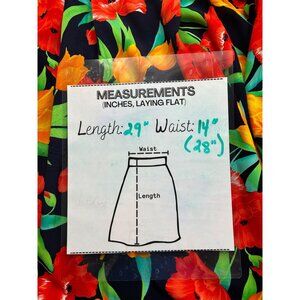 MEASUREMENTS
(INCHES, LAYING FLAT)
Length: 29" Waist: 14"
(28")
Waist
Length